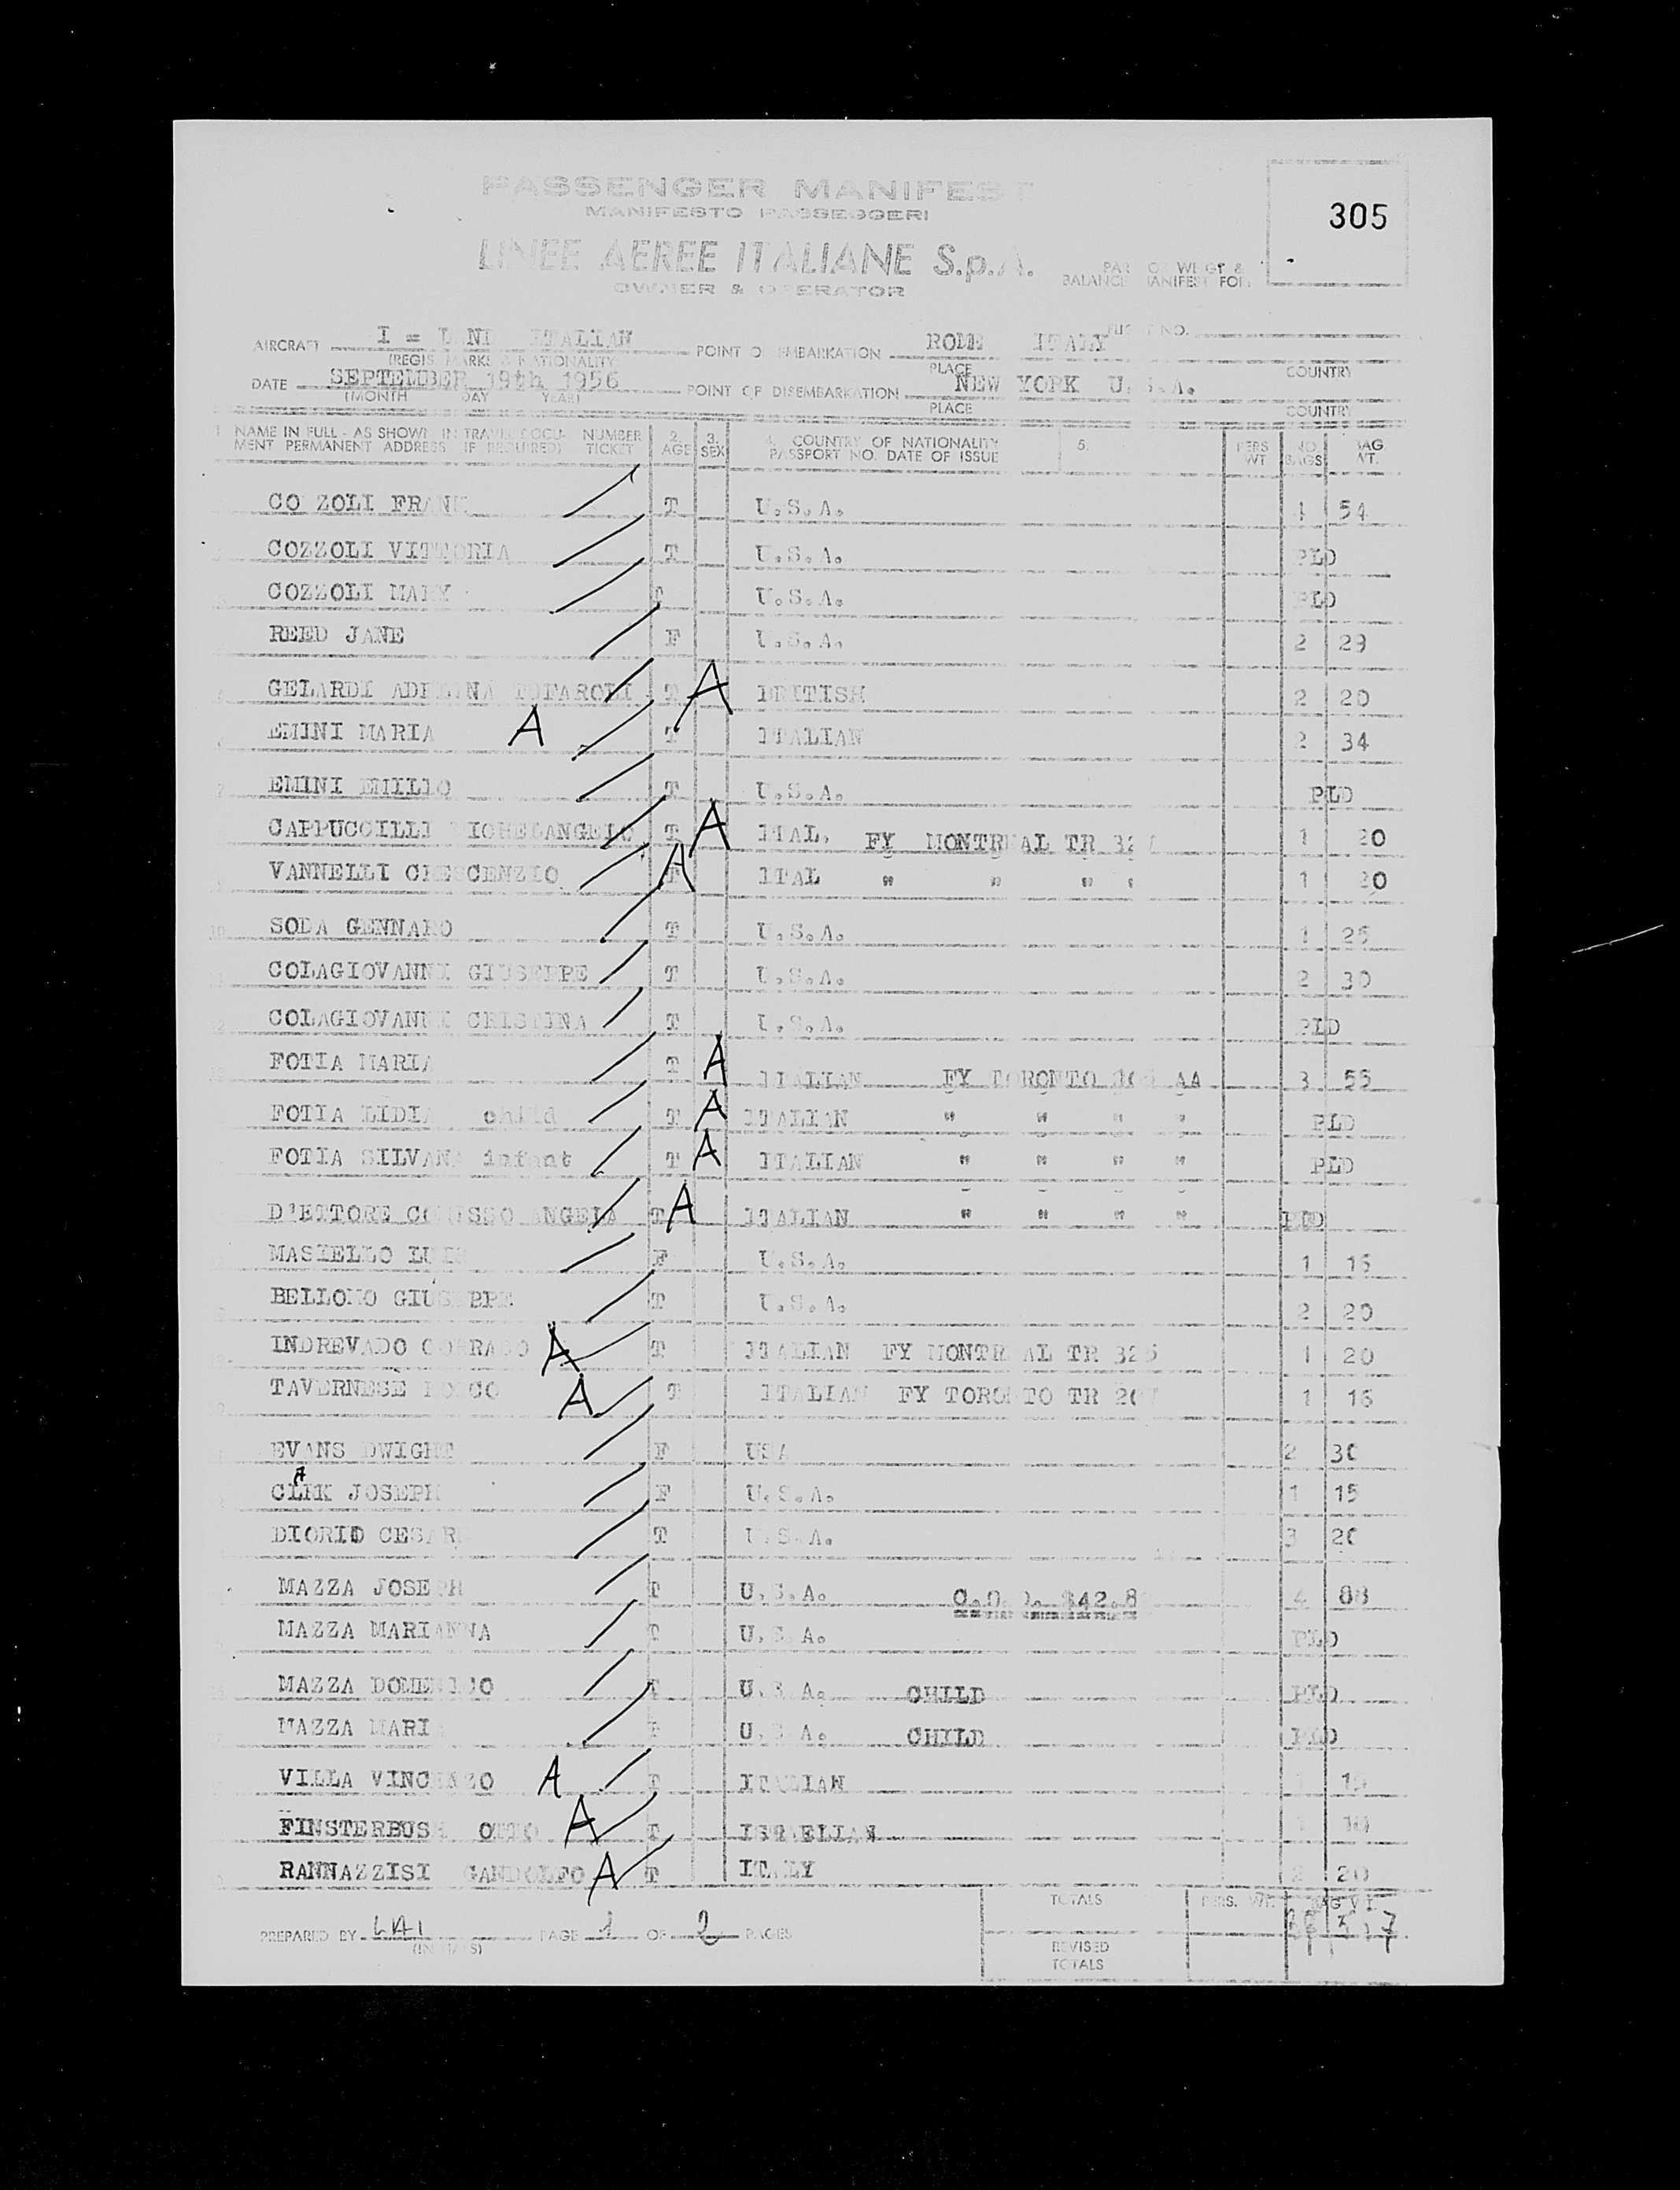 PASSENGER MANIFEST
305
MANIFESTO PASSEGGERI
LINEE AEREE ITALIANE S.p.A.
OWNER & OPERATOR
PART OF WEIGT &
BALANCE MANIFEST FOR
AIRCRAFT I = ITALIAN POINT OF EMBARKATION ROME ITALY FLIGHT NO.
(REGIS. MARKS & NATIONALITY) PLACE COUNTRY
DATE SEPTEMBER 19th 1956 POINT OF DISEMBARKATION NEW YORK U.S.A.
(MONTH DAY YEAR) PLACE COUNTRY
1. NAME IN FULL - AS SHOWN IN TRAVEL DOCU- NUMBER 2. 3. 4. COUNTRY OF NATIONALITY 5. PERS NO. BAG
MENT PERMANENT ADDRESS (IF REQUIRED) TICKET AGE SEX PASSPORT NO. DATE OF ISSUE WT BAGS WT.
COZZOLI FRANK T U.S.A. 1 54
COZZOLI VITTORIA T U.S.A. PLD
COZZOLI MARY T U.S.A. PLD
REED JANE F U.S.A. 2 29
GELARDI T A BRITISH 2 20
EMINI MARIA A T ITALIAN 2 34
EMINI EMILIO T U.S.A. PLD
CAPPUCCILLI MICHELANGELO T A ITAL. FY MONTREAL TR 1 20
VANNELLI CRESCENZIO T A ITAL " " " " 1 20
SODA GENNARO T U.S.A. 1 25
COLAGIOVANNI GIUSEPPE T U.S.A. 2 30
COLAGIOVANNI CRISTINA T U.S.A. PLD
FOTIA MARIA T A ITALIAN FY TORONTO AA 3 55
FOTIA LIDIA child T A ITALIAN " " " " PLD
FOTIA SILVANA infant T A ITALIAN " " " " PLD
D'ETTORE ANGELA T A ITALIAN " " " " PLD
MASIELLO F U.S.A. 1 15
BELLOMO GIUSEPPE T U.S.A. 2 20
INDREVADO CORRADO A T ITALIAN FY MONTREAL TR 325 1 20
TAVERNESE ROCCO A T ITALIAN FY TORONTO TR 1 16
EVANS DWIGHT F USA 2 30
A
CLRK JOSEPH F U.S.A. 1 15
DIORIO CESARE T U.S.A. 3 20
MAZZA JOSEPH T U.S.A. 4 88
MAZZA MARIANNA T U.S.A. PLD
MAZZA DOMENICO T U.S.A. CHILD PLD
MAZZA MARIA T U.S.A. CHILD PLD
VILLA VINCENZO A T ITALIAN
FINSTERBUSH OTTO A T ISRAELIAN
RANNAZZISI GANDOLFO A T ITALY 2 20
TOTALS PERS. WT. BAG WT.
PREPARED BY LAI PAGE 1 OF 2 PAGES
(INITIALS) REVISED
TOTALS